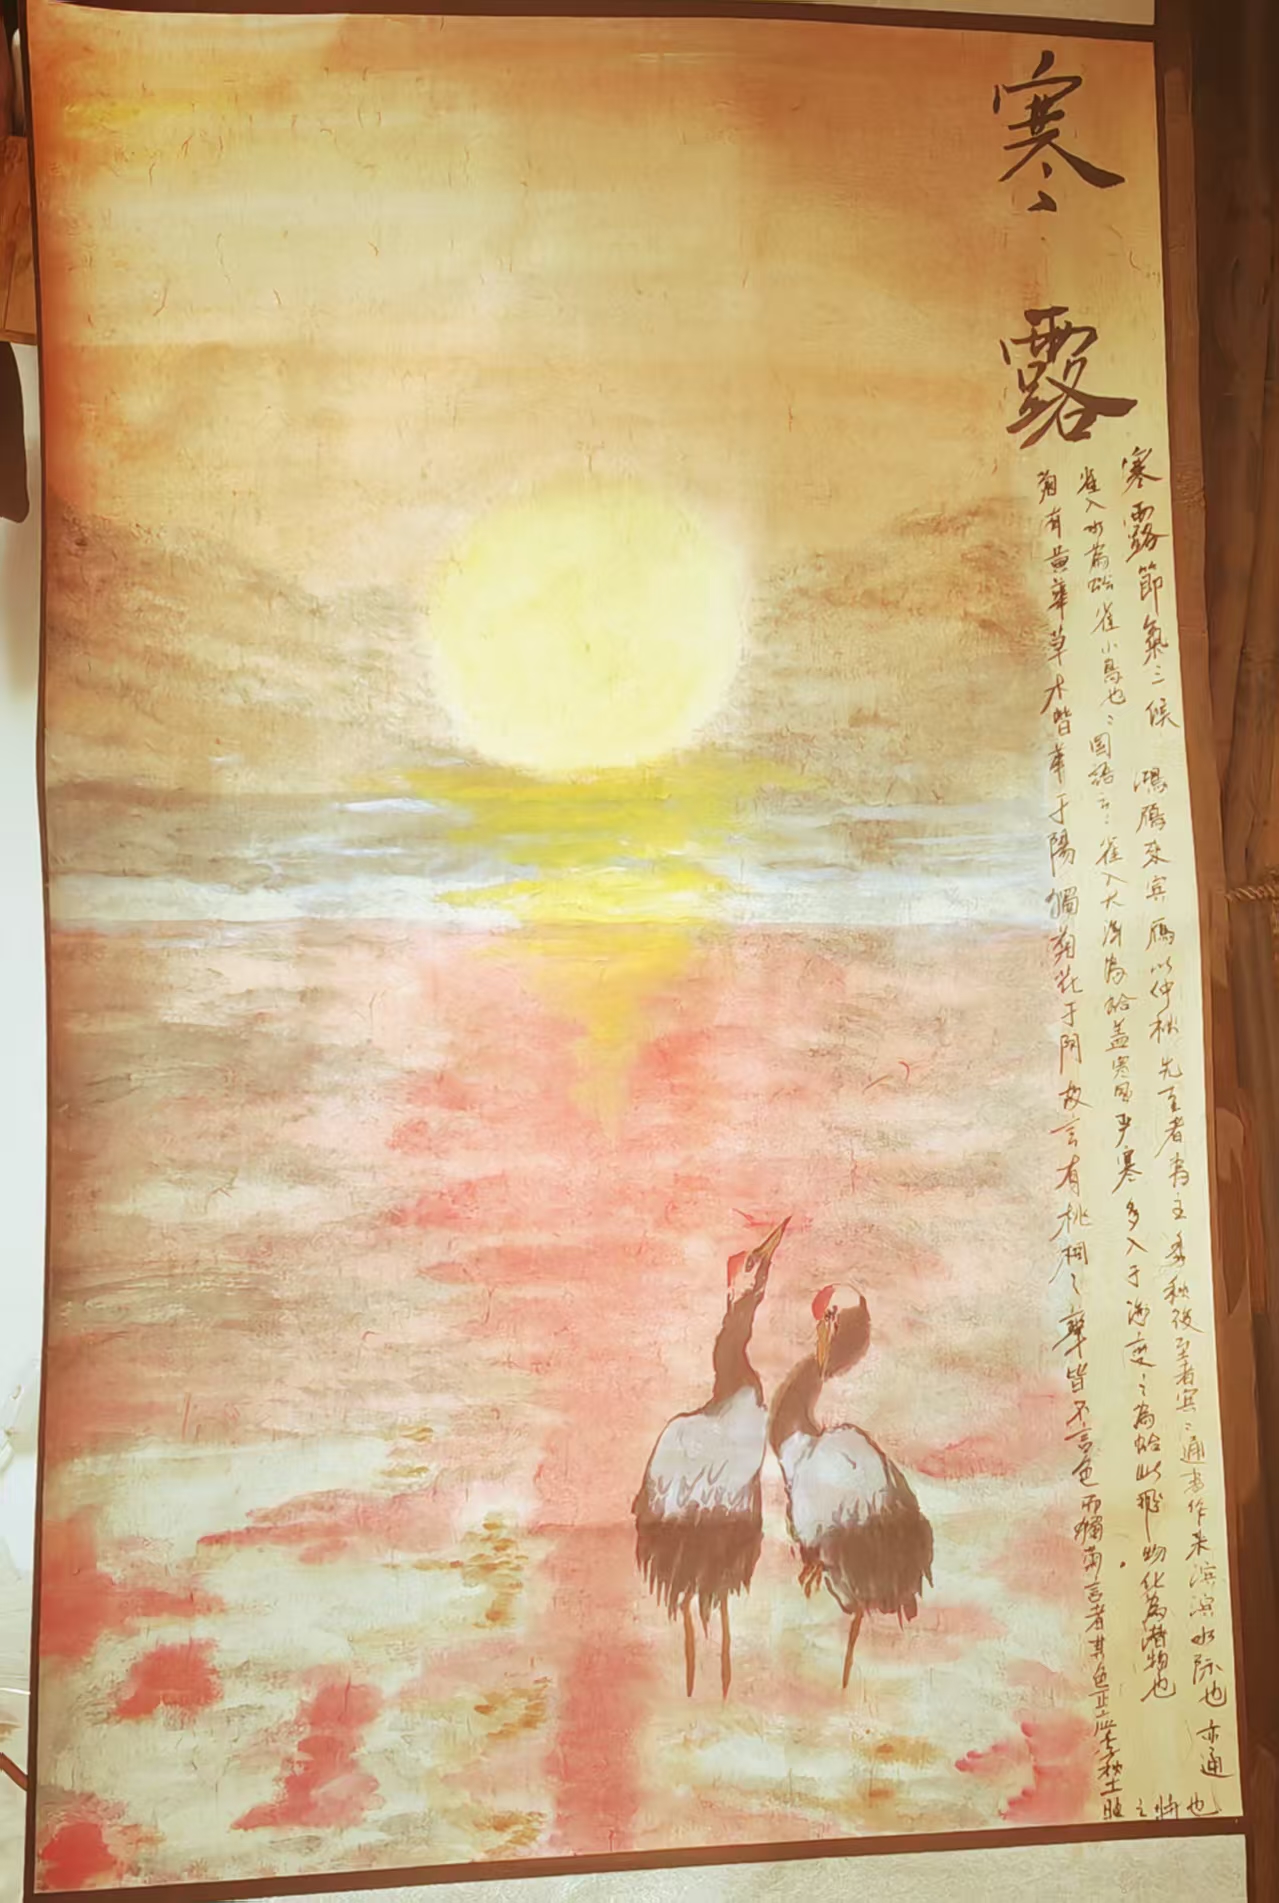 寒露
寒露節氣三候 鴻鴈來宾 鴈以仲秋先至者为主 季秋後至者宾 通書作来滨 滨水际也 亦通
雀入水為蛤 雀小鳥也 国語云 雀入大海為蛤 盖寒風严寒多入于海 变之為蛤 此飛物化為潜物也
菊有黄華 草木皆華于陽 獨菊花于阴 故言有桃桐之華皆不言色 而獨菊言者其色正应季秋土旺之時也